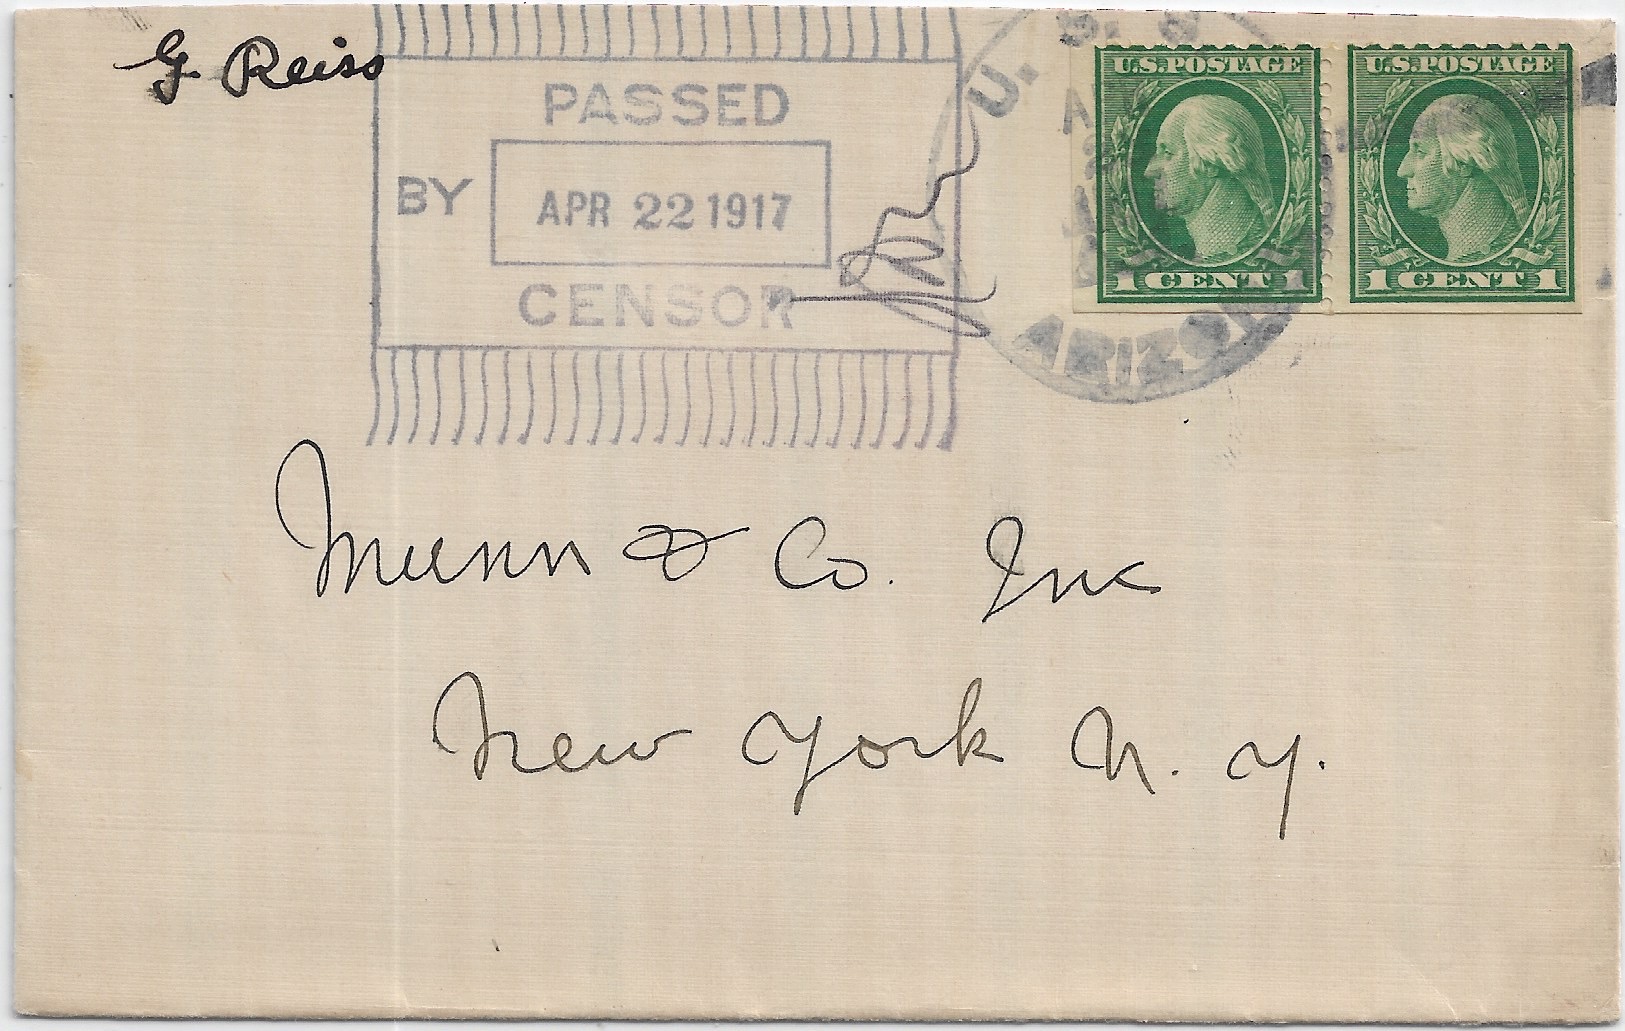 G. Reiss
PASSED
BY
APR 22 1917
CENSOR
U. S. S.
ARIZONA
U.S.POSTAGE
1 CENT 1
U.S.POSTAGE
1 CENT 1
Munn & Co. Inc
New York N. Y.